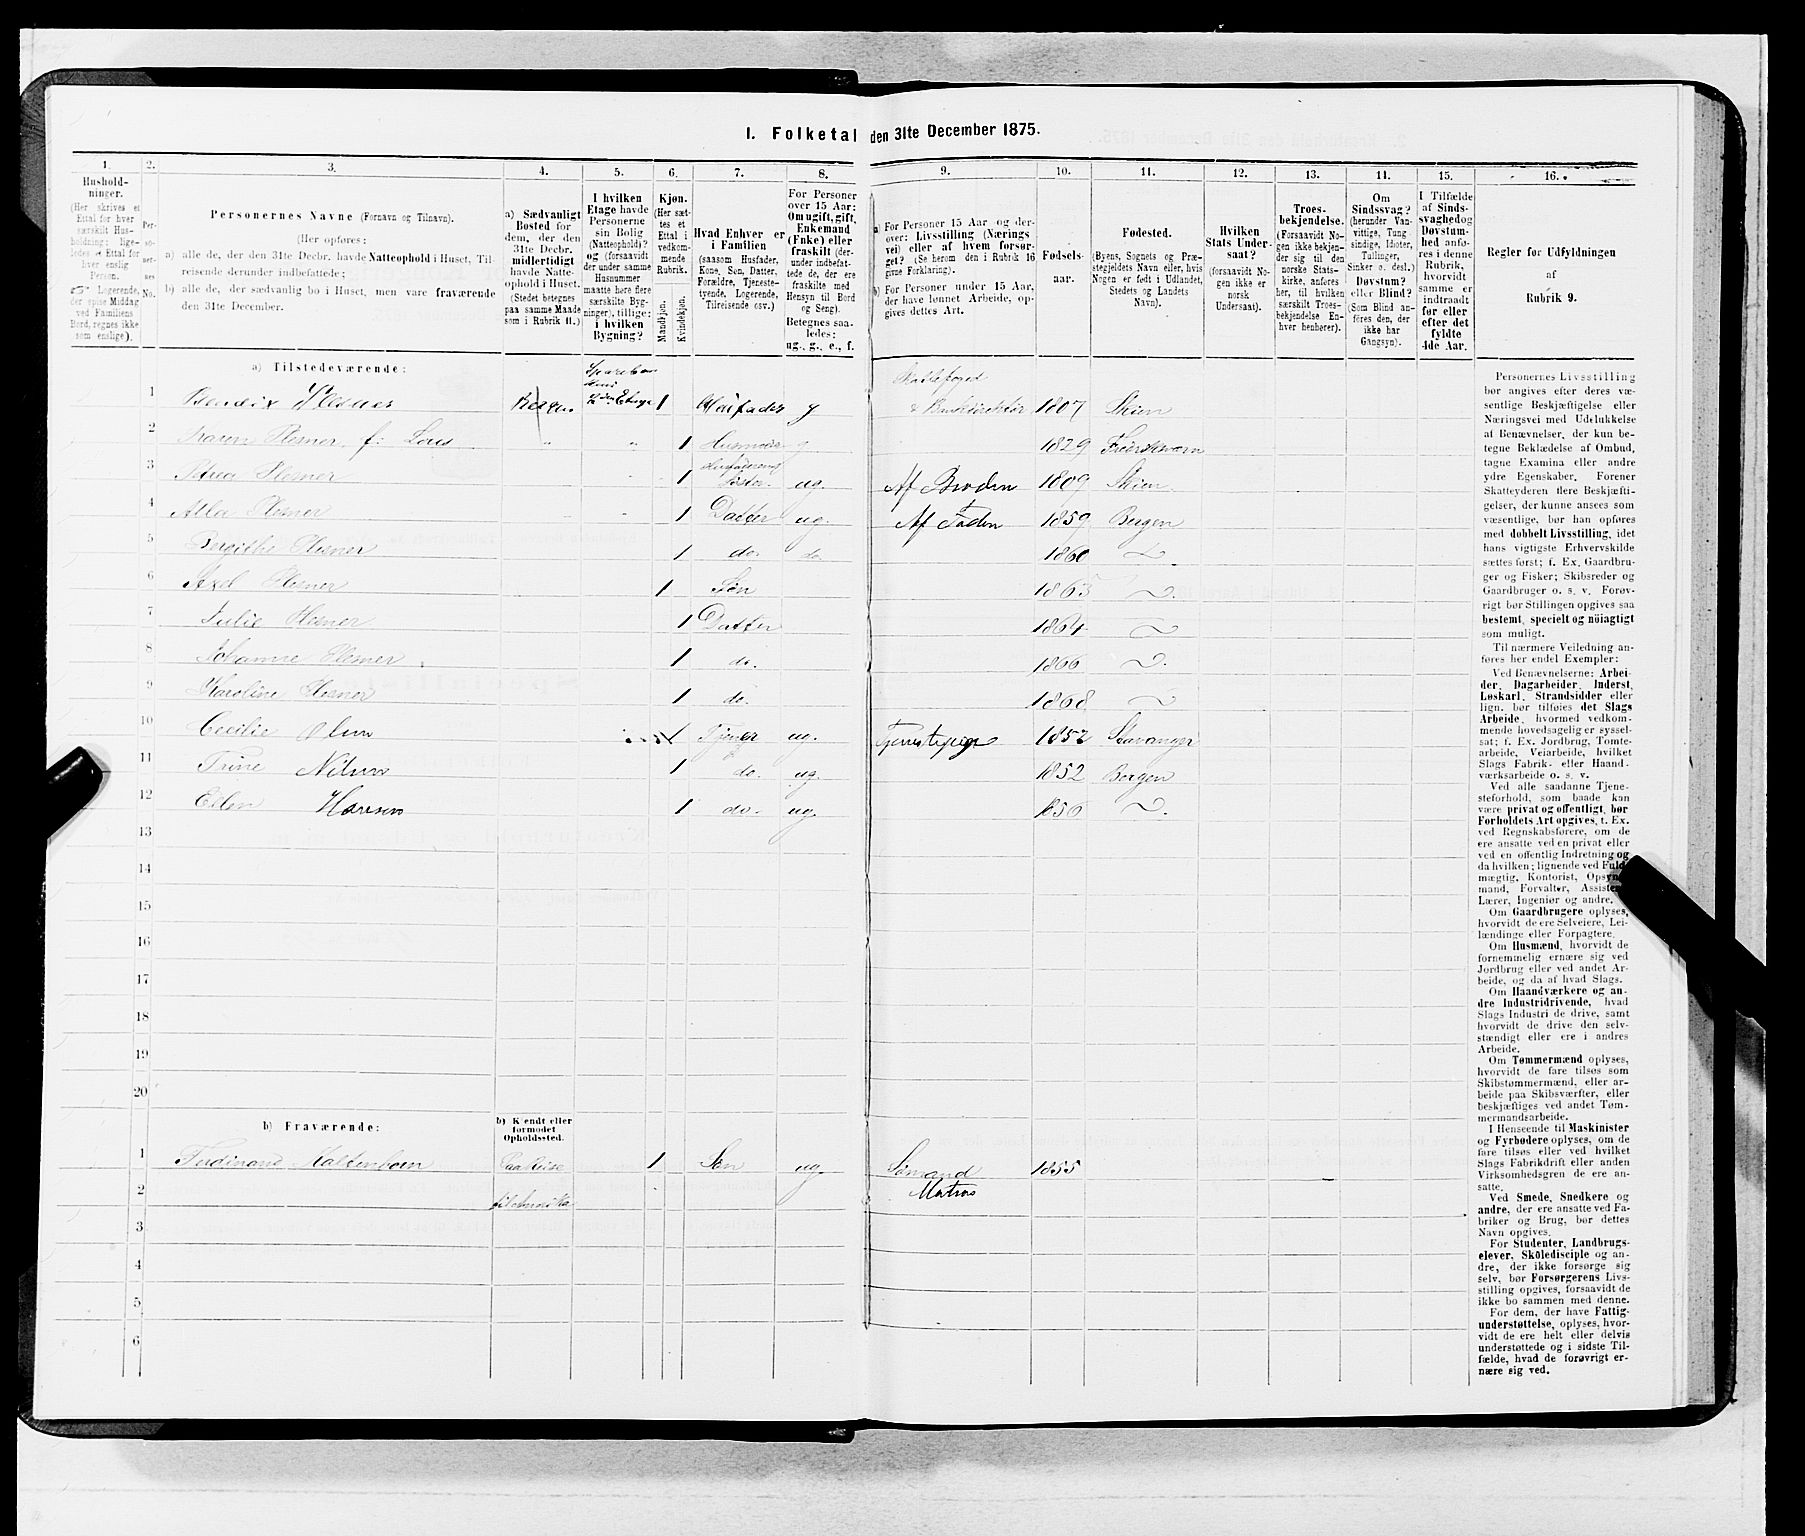 I. Folketal den 31te December 1875.
1. 2. 3. 4. 5. 6. 7. 8. 9. 10. 11. 12. 13. 14. 15. 16.
Hushold-
ninger.
(Her skrives et
Ettal for hver
særskilt Hus-
holdning; lige-
ledes et Ettal for
hver enslig
Person.
Logerende,
der spise Middag
ved Familiens
Bord, regnes ikke
som enslige).
Per-
so-
ner-
nes
No.
Personernes Navne (Fornavn og Tilnavn).
(Her opføres:
a) alle de, der den 31te Decbr. havde Natteophold i Huset, Til-
reisende derunder indbefattede;
b) alle de, der sædvanlig bo i Huset, men vare fraværende
den 31te December.
a) Sædvanligt
Bosted for
dem, der den
31te Decbr.
midlertidigt
havde Natte-
ophold i Huset.
(Stedet betegnes
paa samme Maade
som i Rubrik 11.)
I hvilken
Etage havde
Personerne
sin Bolig
(Natteophold)?
og (forsaavidt
der under samme
Husnummer
maatte høre flere
særskilte Byg-
ninger), tillige:
i hvilken
Bygning?
Kjøn.
(Her sæt-
tes et
Ettal i
vedkom-
mende
Rubrik.
Mandkjøn.
Kvindekjøn.
Hvad Enhver er
i Familien
(saasom Husfader,
Kone, Søn, Datter,
Forældre, Tjeneste-
tyende, Logerende,
Tilreisende osv.)
For Personer
over 15 Aar:
Om ugift, gift,
Enkemand
(Enke) eller
fraskilt (der-
under indbefat-
tede de, der ere
fraskilte med
Hensyn til Bord
og Seng).
Betegnes saa-
ledes:
ug., g., e., f.
a) For Personer 15 Aar og der-
over: Livsstilling (Nærings-
vei) eller af hvem forsør-
get? (Se herom den i Rubrik 16
givne Forklaring).
b) For Personer under 15 Aar,
der have lønnet Arbeide, op-
gives dettes Art.
Fødsels-
aar.
Fødested.
(Byens, Sognets og Præ-
stegjeldets Navn eller, hvis
Nogen er født i Udlandet,
Stedets og Landets
Navn).
Hvilken
Stats Under-
saat?
(forsaavidt No-
gen ikke er
norsk
Undersaat).
Troes-
bekjendelse.
(Forsaavidt No-
gen ikke bekjen-
der sig til den
norske Stats-
kirke, anføres
her, til hvilken
særskilt Troes-
bekjendelse En-
hver henhører).
Om
Sindssvag?
(herunder Van-
vittige, Tung-
sindige, Idioter,
Tullinger,
Sinker o. desl.)
Døvstum?
eller Blind?
(Som Blind an-
føres den, der
ikke har
Gangsyn).
I Tilfælde
af Sinds-
svaghed og
Døvstum-
hed anfø-
res i denne
Rubrik,
hvorvidt
samme er
indtraadt
før eller
efter det
fyldte
4de Aar.
Regler for Udfyldningen
af
Rubrik 9.
a) Tilstedeværende:
1 Bendix Plesner Bergen 2den Etage 1 Husfader g & Bankdirektør 1807 Skien
2 Karen Plesner f: " " 1 Husmoder g 1829 Fredriksværn
3 Petrea Plesner 1 Husfaderens Søster ug. Af Broderen 1809 Skien
4 Alla Plesner 1 Datter ug. Af Faderen 1859 Bergen
5 Bergithe Plesner 1 do. do. 1860
6 Axel Plesner 1 Søn 1863
7 Julie Plesner 1 Datter 1864
8 Johanne Plesner 1 do. 1866
9 Karoline Plesner 1 do. 1868
10 Cecilie Olsen 1 Tjener ug. Tjenestepige 1852 Stavanger
11 Trine Nilsen 1 do. ug. 1852 Bergen
12 Ellen Hansen 1 do. ug. 1850
13
14
15
16
17
18
19
20
b) Fraværende:
b) Kjendt eller
formodet
Opholdssted.
1 Ferdinand Kaltenborn Paa Reise 1 Søn ug Sømand 1855
2 til Amerika Matros
3
4
5
6
Personernes Livsstilling
bør angives efter deres væ-
sentlige Beskjæftigelse eller
Næringsvei med Udelukkelse
af Benævnelser, der kun be-
tegne Beklædelse af Ombud,
tagne Examina eller andre
ydre Egenskaber. Forener
Skatteyderen flere Beskjæfti-
gelser, der kunne ansees som
væsentlige, bør han opføres
med dobbelt Livsstilling, idet
hans vigtigste Erhvervskilde
sættes først; f. Ex. Gaardbru-
ger og Fisker; Skibsreder og
Gaardbruger o. s. v. Forøv-
rigt bør Stillingen opgives saa
bestemt, specielt og nøiagtigt
som muligt.
Til nærmere Veiledning an-
føres her endel Exempler:
Ved Benævnelserne: Arbei-
der, Dagarbeider, Inderst,
Løskarl, Strandsidder eller
lign. bør tilføies det Slags
Arbeide, hvormed vedkom-
mende hovedsagelig er syssel-
sat; f. Ex. Jordbrug, Tomte-
arbeide, Veiarbeide, hvilket
Slags Fabrik- eller Haand-
værksarbeide o. s. v.
Ved alle saadanne Tjene-
steforhold, som baade kan
være privat og offentligt, bør
Forholdets Art opgives, t. Ex.
ved Regnskabsførere, om de
ere ansatte ved en privat eller
ved en offentlig Indretning og
da hvilken; lignende ved Fuld-
mægtig, Kontorist, Opsyns-
mand, Forvalter, Assistent,
Lærer, Ingeniør og andre.
Om Gaardbrugere oplyses,
hvorvidt de ere Selveiere, Lei-
lændinge eller Forpagtere.
Om Husmænd, hvorvidt de
fornemmelig ernære sig ved
Jordbrug eller ved andet Ar-
beide, og da af hvad Slags.
Om Haandværkere og an-
dre Industridrivende, hvad
Slags Industri de drive, samt
hvorvidt de drive den selv-
stændigt eller ere i andres
Arbeide.
Om Tømmermænd oplyses,
hvorvidt de fare tilsøs som
Skibstømmermænd, eller ar-
beide paa Skibsværfter, eller
beskjæftiges ved andet Tøm-
mermandsarbeide.
I Henseende til Maskinister
og Fyrbødere oplyses, om de
fare tilsøs eller ved hvilket
Slags Fabrikdrift eller anden
Virksomhedsgren de ere an-
satte.
Ved Smede, Snedkere og
andre, der ere ansatte ved Fa-
briker og Brug, bør dettes
Navn opgives.
For Studenter, Landbrugs-
elever, Skoledisciple og an-
dre, der ikke forsørge sig
selv, bør Forsørgerens Livs-
stilling opgives, forsaavidt de
ikke bo sammen med denne.
For dem, der have Fattig-
understøttelse, oplyses, hvor-
vidt de ere helt eller delvis
understøttede og i sidste Til-
fælde, hvad de forøvrigt er-
nære sig ved.